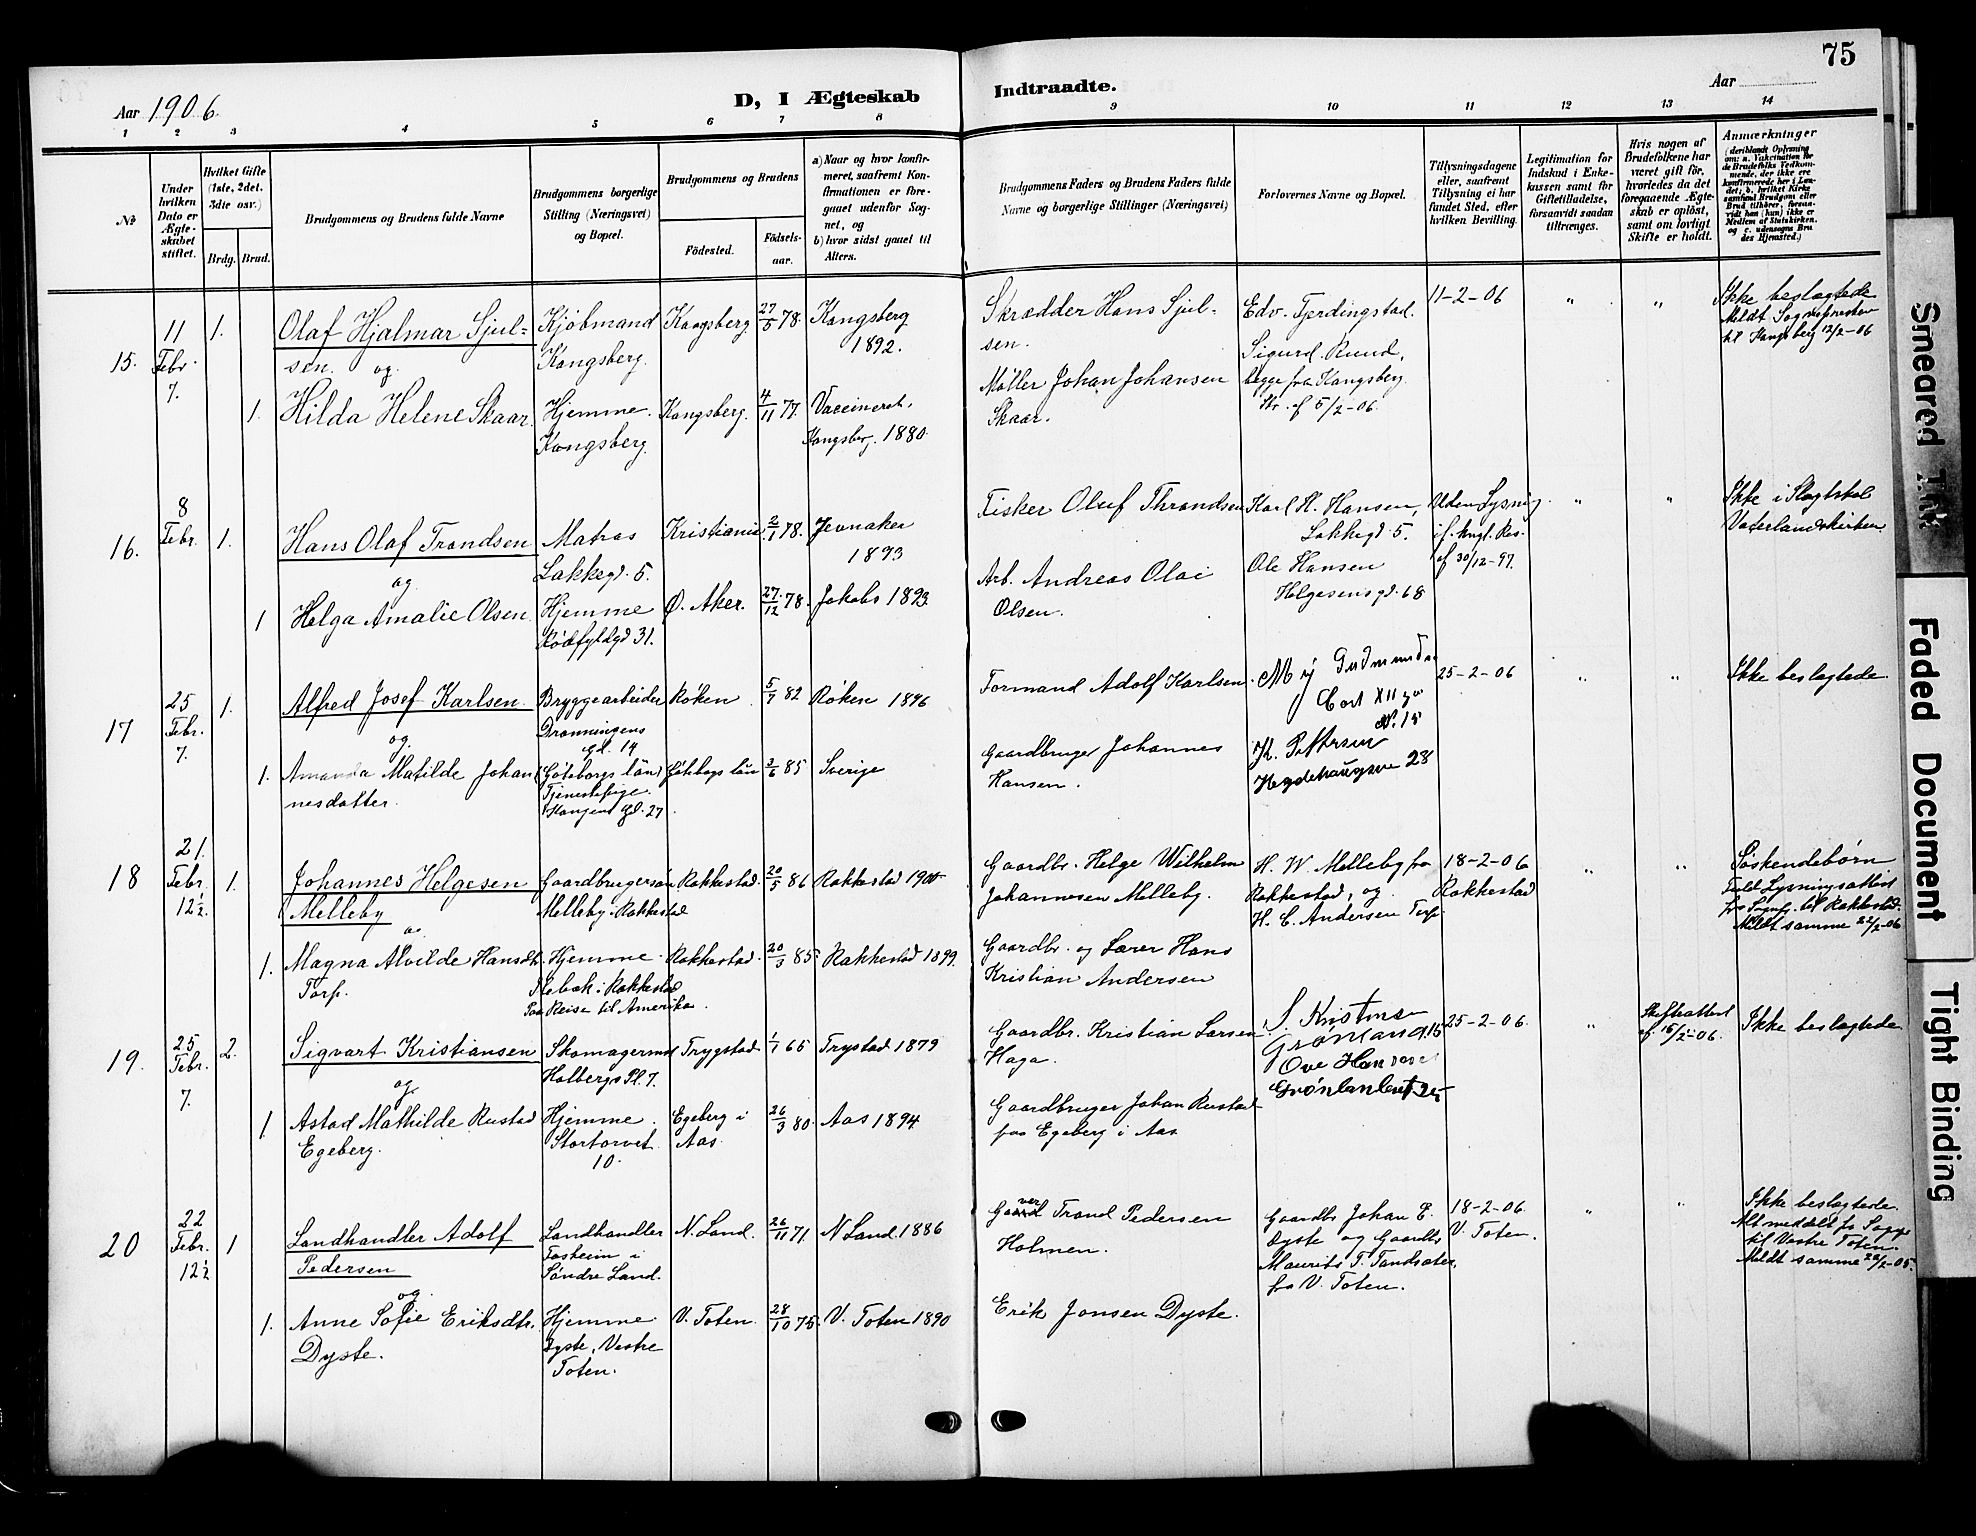 75
Aar 1906.
D, I Ægteskab
Indtraadte.
Aar
1 2 3 4 5 6 7 8 9 10 11 12 13 14
No
Under
hvilken
Dato er
Ægte-
skabet
stiftet.
Hvilket Gifte
(1ste, 2det,
3die osv.)
Brdg. Brud.
Brudgommens og Brudens fulde Navne
Brudgommens borgerlige
Stilling (Næringsvei)
og Bopæl.
Brudgommens og Brudens
Födested.
Födsels-
aar.
a) Naar og hvor konfir-
meret, saafremt Kon-
firmationen er fore-
gaaet udenfor Sog-
net, og
b) hvor sidst gaaet til
Alters.
Brudgommens Faders og Brudens Faders fulde
Navne og borgerlige Stillinger (Næringsvei)
Forlovernes Navne og Bopæl.
Tillysningsdagene
eller, saafremt
Tillysning ei har
fundet Sted, efter
hvilken Bevilling.
Legitimation for
Indskud i Enke-
kassen samt for
Giftetilladelse,
forsaavidt saadan
tiltrænges.
Hvis nogen af
Brudefolkene har
været gift för,
hvorledes da det
foregaaende Ægte-
skab er oplöst,
samt om lovligt
Skifte er holdt.
Anmærkninger
(deriblandt Oplysning
om: a. Vakcination for
de Brudefolks Vedkom-
mende, der ikke ere
konfirmerede her i Lan-
det; b. hvilket Kirke
samfund Brudgom eller
Brud tilhörer, forsaa-
vidt han (hun) ikke er
Medlem af Statskirken,
og c. udensogns Bru
des Hjemsted.)
15.
11
Febr.
7.
1.
Olaf Hjalmar Sjul-
sen. og
Kjöbmand
Kongsberg.
Kongsberg
27/5 78.
Kongsberg
1892.
Skrædder Hans Sjul-
sen.
Edv. Fjerdingstad.
Sigurd Rund,
begge fra Kongsberg.
Str. af 5/2-06.
11-2-06
"
"
Ikke beslægtede
Meldt Sognepresten
til Kongsberg 12/2-06
1.
Hilda Helene Skaar.
Hjemme.
Kongsberg.
Kongsberg.
4/11 77.
Vaccineret.
Kongsberg. 1880.
Møller Johan Johansen
Skaar.
16.
8
Febr.
1.
Hans Olaf Trandsen
og
Matros
Lakkegd. 5.
Kristiania
2/1 78.
Jevnaker
1893
Fisker Oluf Thrandsen
Karl H. Hansen,
Lakkegd. 5.
Ole Hansen
Helgesensgd. 68
Uden Lysning
if. kngl. Res.
af 30/12-97.
"
"
Ikke i Slægtskab
Vaterlandskirken
1
Helga Amalie Olsen
Hjemme
Rödfyldgd 31.
Ø. Aker.
27/12 78.
Jakobs 1893.
Arb. Andreas Olai
Olsen.
17
25
Febr.
7.
1.
Alfred Josef Karlsen.
og
Bryggearbeider
Dronningens
gd. 14
Røken
5/7 82
Røken 1896
Formand Adolf Karlsen.
25-2-06
"
"
Ikke beslægtede.
1.
Amanda Matilde Johan
nesdatter.
(Göteborgs län)
Tjenestepige.
27
Göteborgs län
2/6 85
Sverige
Gaardbruger Johannes
Hansen.
Hegdehaugsve 28
18
21.
Febr.
12½.
1.
Johannes Helgesen
Melleby
og
Gaardbrugersøn
Melleby Rakkestad
Rakkestad.
20/5 86
Rakkestad 1900
Gaardbr. Helge Wilhelm
Johannesen Melleby.
H. W. Melleby fra
Rakkestad, og
H. C. Andersen Torp.
18-2-06
Rakkestad
"
"
Søskendebörn
Lysningsattest
til Rakkestad.
Meldt samme 22/2-06
1.
Magna Alvilde Hansdtr.
Torp.
Hjemme
i Rakkestad
Paa Reise til Amerika.
Rakkestad.
20/3 85.
Rakkestad 1899.
Gaardbr. og Lærer Hans
Kristian Andersen
19.
25
Febr.
7.
2.
Sigvart Kristiansen
og
Skomagermd
Holbergs Pl. 7.
Trygstad
1/1 65
Trystad 1879
Gaardbr. Kristian Larsen
Haga.
Grønland 15
Ove Hansen
25-2-06.
"
Skifteattest
af 15/2-06.
Ikke beslægtede
1.
Astad Mathilde Rustad
Egeberg.
Hjemme.
Stortorvet
10.
Egeberg i
Aas
26/3 80.
Aas 1894
Gaardbruger Johan Rustad
paa Egeberg i Aas
20
22
Febr.
12½
1
Landhandler Adolf
Pedersen
og
Landhandler
Fosheim i
Søndre Land.
N. Land.
26/11 71
N Land. 1886
Trond Pedersen
Holmen.
Gaardbr Johan E.
Dyste og Gaardbr
Maurits T.
fra V. Toten.
18-2-06.
V. Toten.
"
"
Ikke beslægtede.
til Vestre Toten.
Meldt samme
1.
Anne Sofie Eriksdtr.
Dyste.
Hjemme
Dyste, Vestre
Toten.
V. Toten.
28/10 75.
V. Toten 1890
Erik Jonsen Dyste.
Smeared Ink
Faded Document
Tight Binding